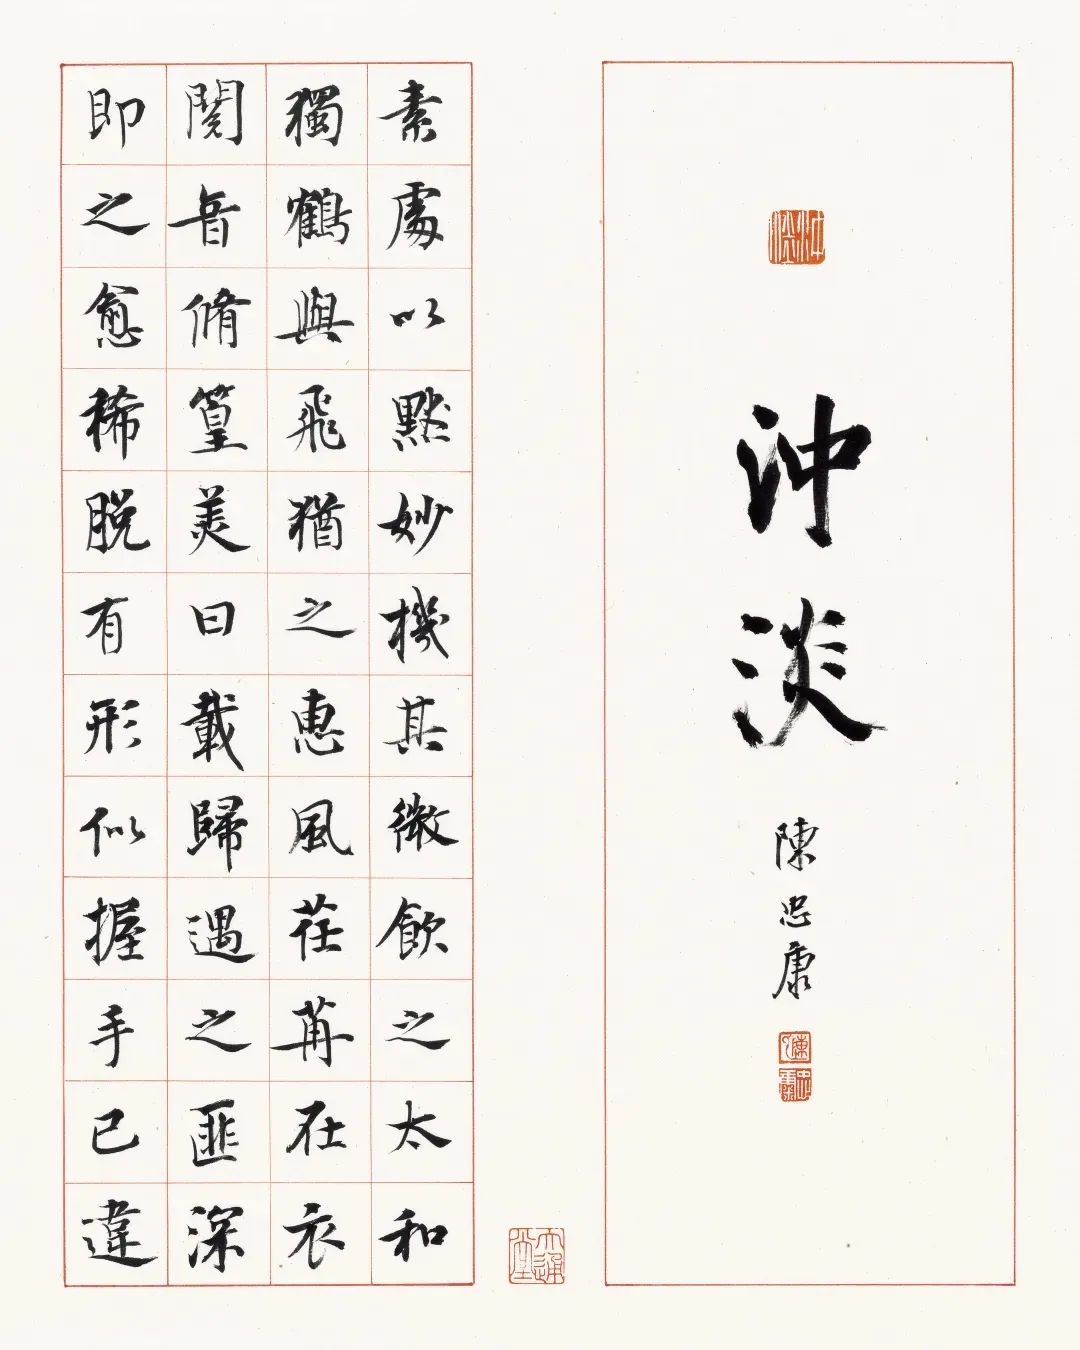 沖淡
沖淡
陳忠康
忠康
大通堂
素處以默妙機其微飲之太和
獨鶴與飛猶之惠風荏苒在衣
閱音脩篁美曰載歸遇之匪深
即之愈稀脫有形似握手已違